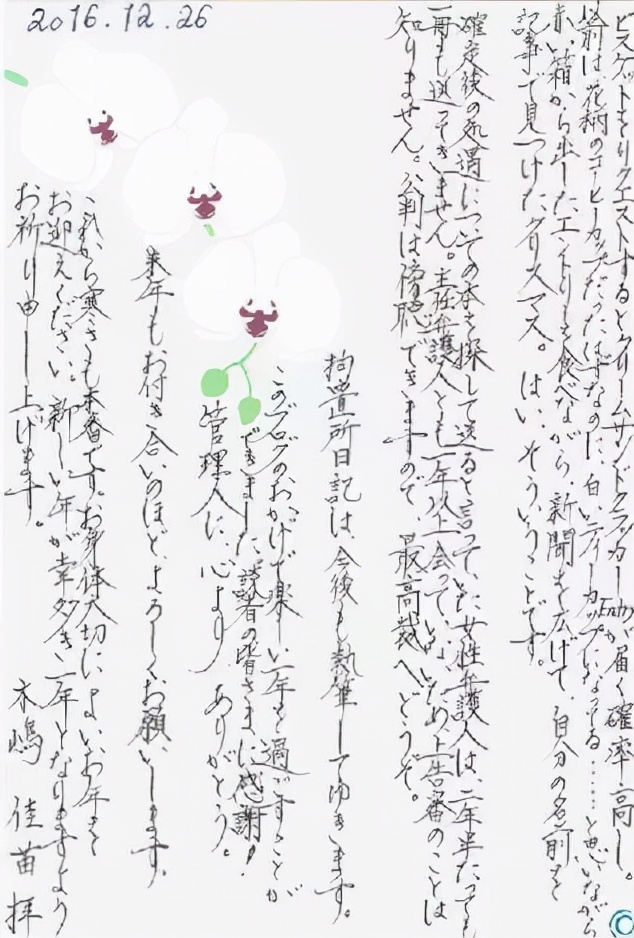 2016.12.26
ビスケットをリクエストするとクリームサンドクラッカーEntryが届く確率高し。
以前は、花柄のコーヒーカップだったはずなのに、白いティーカップになってる……と思いながら
赤い箱から出したエントリーを食べながら、新聞を広げて、自分の名前を
記事で見つけたクリスマス。はい、そういうことです。
確定後の処遇についての本を探して送ると言っていた女性弁護人は、二年半たっても
一冊も送ってきません。主任弁護人とも一年以上会っていないため、上告審のことは
知りません。公判は傍聴できますので、最高裁へどうぞ。
拘置所日記は、今後も執筆してゆきます。
このブログのおかげで楽しい一年を過ごすことが
できました。読者の皆さまに感謝!
管理人に、心より ありがとう。
来年もお付き合いのほど、よろしくお願いします。
これから寒さも本番です。お身体大切に、よいお年を
お迎えください。新しい年が幸多き一年となりますよう
お祈り申し上げます。
木嶋 佳苗 拝
©